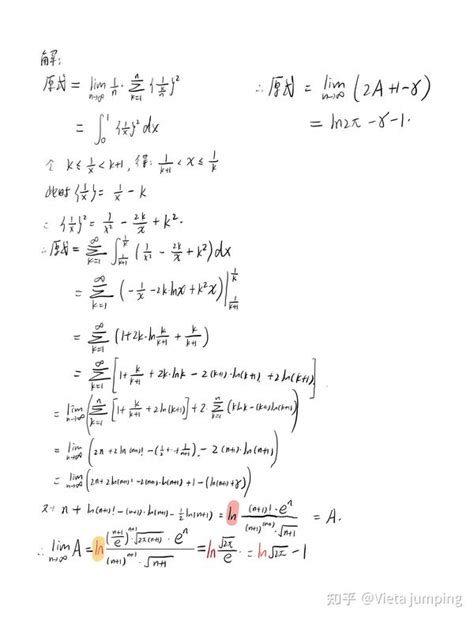 解:
原式 = lim_{n→∞} 1/n · Σ_{k=1}^{n} {n/k}²
= ∫_0^1 {1/x}² dx
令 k ≤ 1/x < k+1, 得: 1/(k+1) < x ≤ 1/k
此时 {1/x} = 1/x − k
∴ {1/x}² = 1/x² − 2k/x + k².
∴ 原式 = Σ_{k=1}^{∞} ∫_{1/(k+1)}^{1/k} (1/x² − 2k/x + k²) dx
= Σ_{k=1}^{∞} (−1/x − 2k·lnx + k²x) |_{1/(k+1)}^{1/k}
= Σ_{k=1}^{∞} (1 + 2k·ln k/(k+1) + k/(k+1))
= Σ_{k=1}^{∞} [1 + k/(k+1) + 2k·lnk − 2(k+1)·ln(k+1) + 2ln(k+1)]
= lim_{n→∞} (Σ_{k=1}^{n} [1 + k/(k+1) + 2ln(k+1)] + 2·Σ_{k=1}^{n} (klnk − (k+1)ln(k+1)))
= lim_{n→∞} (2n + 2ln(n+1)! − (1/2 + ··· + 1/(n+1)) − 2(n+1)·ln(n+1))
= lim_{n→∞} (2n + 2ln(n+1)! − 2(n+1)·ln(n+1) + 1 − (ln(n+1) + γ))
又 n + ln(n+1)! − (n+1)·ln(n+1) − 1/2 ln(n+1) = ln (n+1)!·e^n / ((n+1)^{(n+1)}·√(n+1)) = A.
∴ lim_{n→∞} A = ln ((n+1)/e)^{n+1}·√(2π(n+1))·e^n / ((n+1)^{n+1}·√(n+1)) = ln √(2π)/e = ln√(2π) − 1
∴ 原式 = lim_{n→∞} (2A + 1 − γ)
= ln2π − γ − 1.
知乎 @Vieta jumping